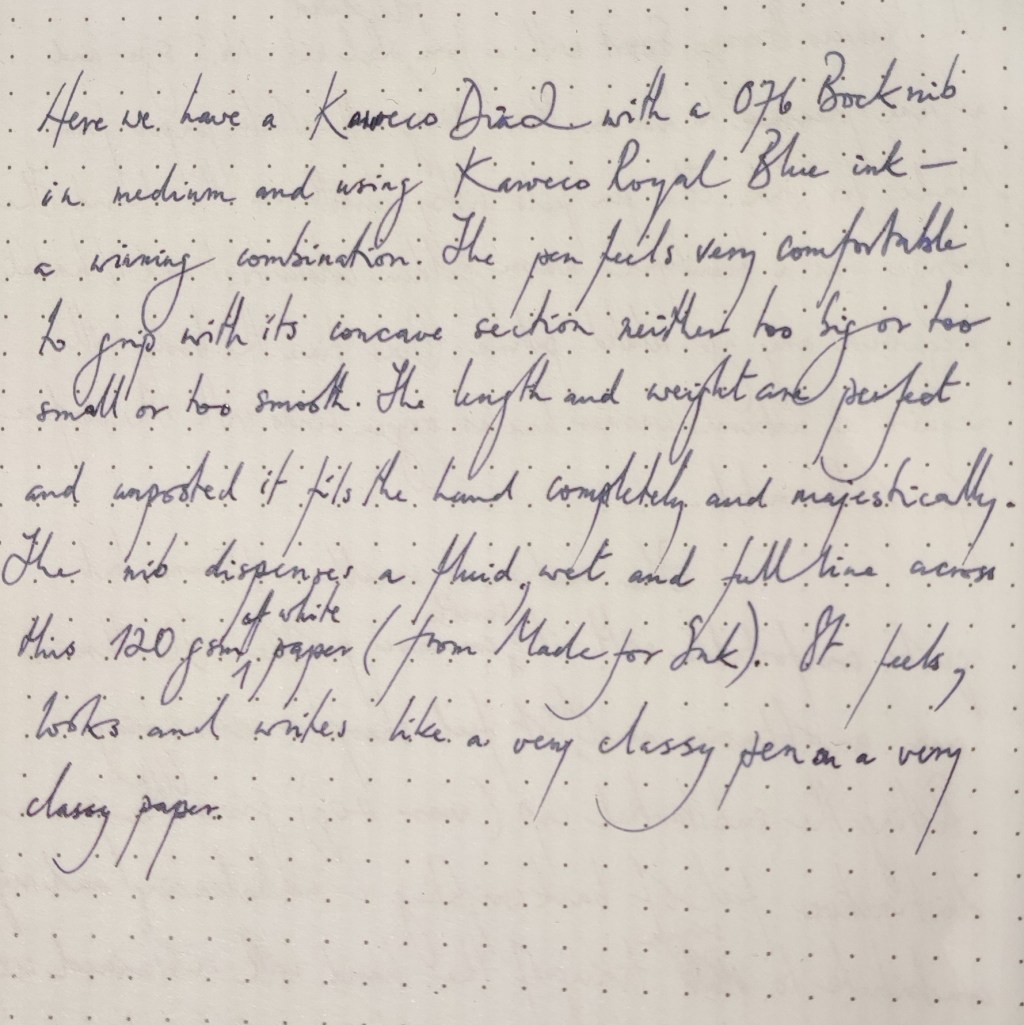 Here we have a Kaweco Dia2 with a 076 Bock nib
in medium and using Kaweco Royal Blue ink –
a winning combination. The pen feels very comfortable
to grip with its concave section neither too big or too
small or too smooth. The length and weight are perfect
and unposted it fits the hand completely and majestically.
The nib dispenses a fluid, wet and full line across
off white
this 120 gsm paper (from Made for Ink). It feels,
looks and writes like a very classy pen on a very
classy paper.